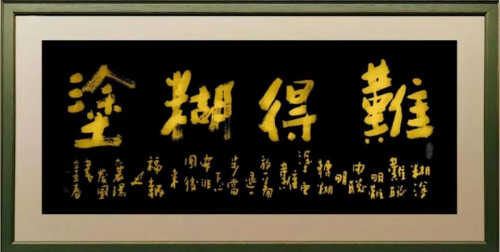 難得糊塗
糊塗
難聰
明難
由聰
明
轉糊
塗更
難
放一着
退一
步當
下心
安非
圖後
來
福報
也